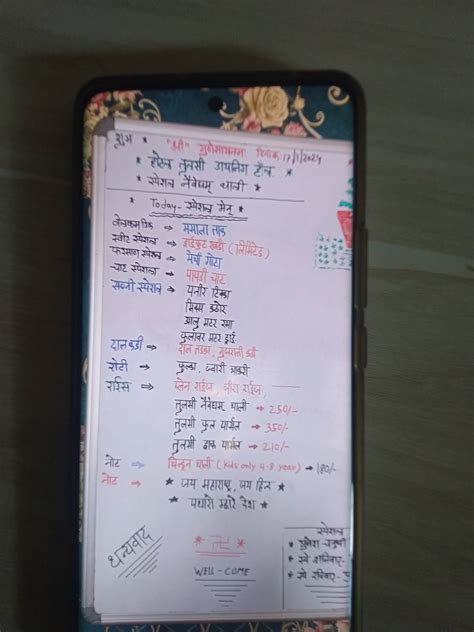 शुभ * "श्री" गणेशायनमः दिनांक. 17/1/2024
* हॉटेल तुलसी डायनिंग हॉल *
* स्पेशल नैवेद्यम् थाली *
* Today- स्पेशल मेनू *
वेलकम ड्रिंक → मसाला ताक
स्वीट स्पेशल → ड्रायफ्रुट रबडी (लिमिटेड)
फरसाण स्पेशल → मेथी गोटा
चाट स्पेशल → पापडी चाट
सब्जी स्पेशल → पनीर टिक्का
मिक्स
आलु मटर रसा
फुलावर मटर ड्राई
दाल कढी → दाल तडका, गुजराती कढी
रोटी → फुल्का, ज्वारी भाकरी
राईस → प्लेन राईस, जीरा राईस,
तुलसी नैवेद्यम् थाली → 250/-
तुलसी फुल पार्सल → 350/-
तुलसी हाफ पार्सल → 210/-
नोट → चिल्ड्रन थाली (Kids only 4-8 year) → 180/-
नोट → * जय महाराष्ट्र, जय हिन्द *
* पधारो म्हारे देश *
धन्यवाद
WELL-COME
स्पेशल
* गणेश चतुर्थी